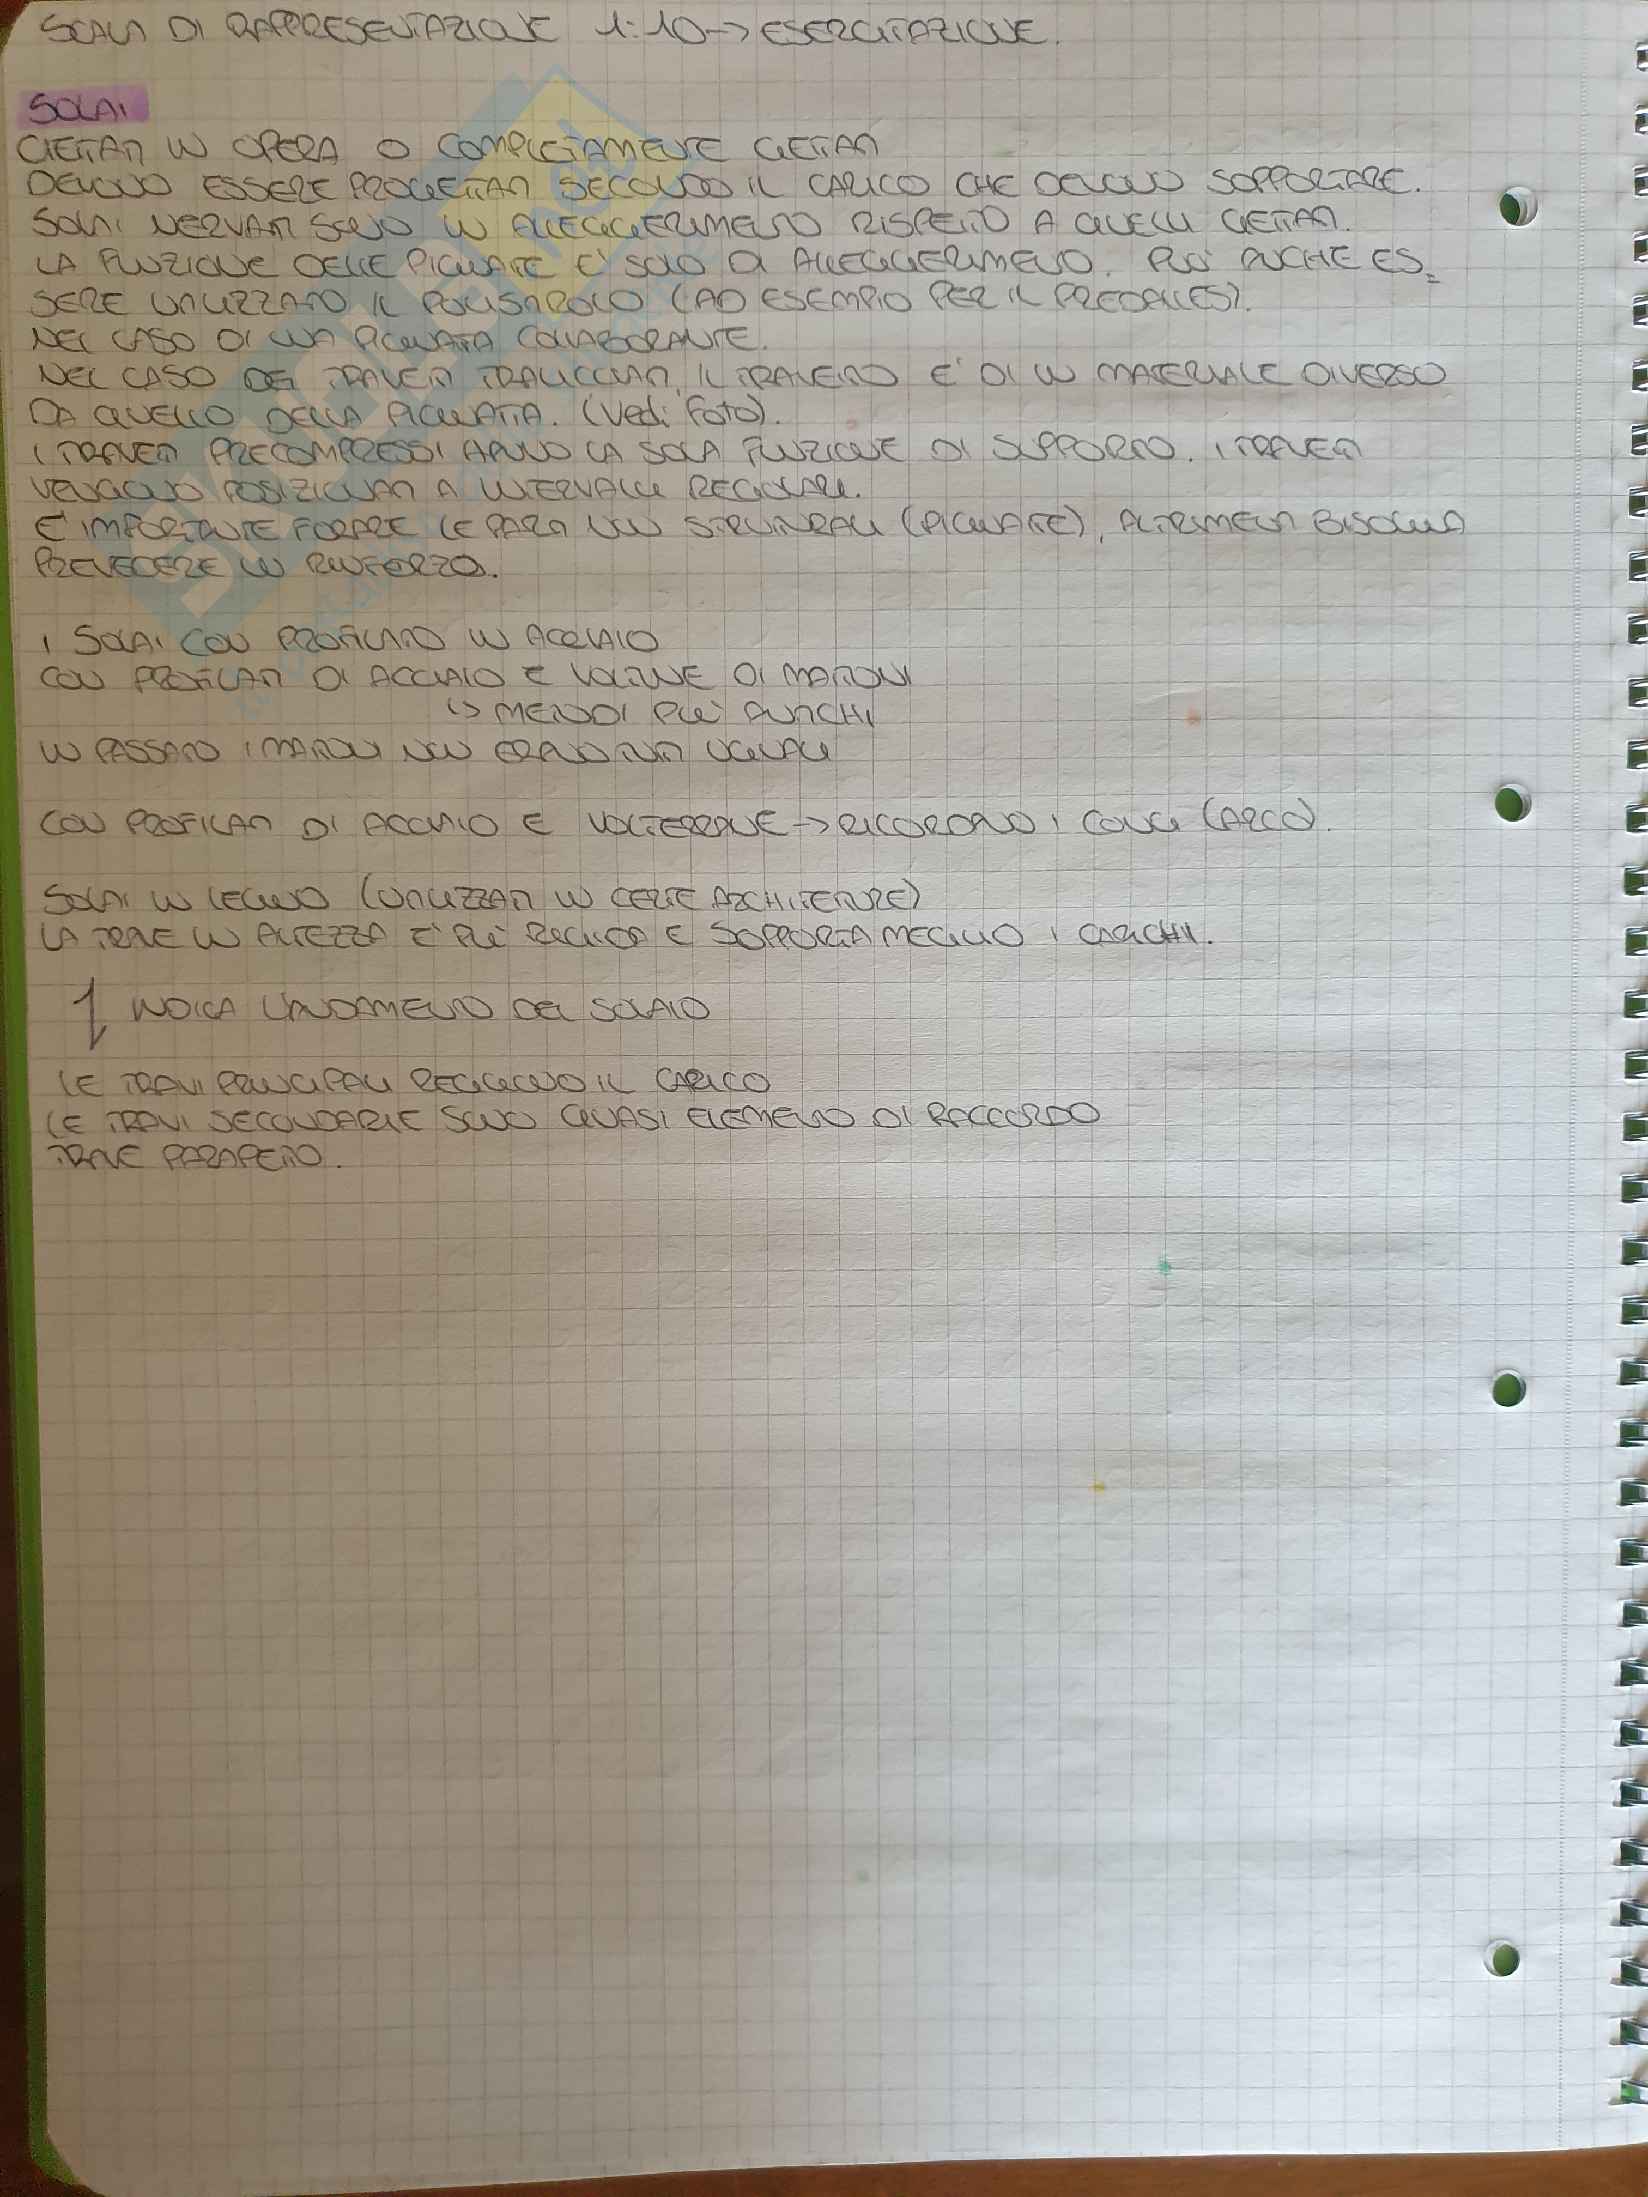 SCALA DI RAPPRESENTAZIONE 1:10 → ESERCITAZIONE.
SOLAI
GETTATI IN OPERA O COMPLETAMENTE GETTATI
DEVONO ESSERE PROGETTATI SECONDO IL CARICO CHE DEVONO SOPPORTARE.
SOLAI NERVATI SONO IN ALLEGGERIMENTO RISPETTO A QUELLI GETTATI.
LA FUNZIONE DELLE PIGNATTE E' SOLO DI ALLEGGERIMENTO. PUO' ANCHE ES=
SERE UTILIZZATO IL POLISTIROLO (AD ESEMPIO PER IL PREDALLES).
NEL CASO DI UNA PIGNATTA COLLABORANTE.
NEL CASO DEI TRAVETTI TRALICCIATI, IL TRAVETTO E' DI UN MATERIALE DIVERSO
DA QUELLO DELLA PIGNATTA. (Vedi Foto).
I TRAVETTI PRECOMPRESSI HANNO LA SOLA FUNZIONE DI SUPPORTO. I TRAVETTI
VENGONO POSIZIONATI A INTERVALLI REGOLARI.
E' IMPORTANTE FORARE LE PARTI NON STRUTTURALI (PIGNATTE), ALTRIMENTI BISOGNA
PREVEDERE UN RINFORZO.
I SOLAI CON PROFILATO IN ACCIAIO
CON PROFILATI DI ACCIAIO E VOLTINE DI MATTONI
↳ METODI PIU' ANTICHI
IN PASSATO I MATTONI NON ERANO TUTTI UGUALI
CON PROFILATI DI ACCIAIO E VOLTERRANE → RICORDANO I CONCI (ARCO).
SOLAI IN LEGNO (UTILIZZATI IN CERTE ARCHITETTURE)
LA TRAVE IN ALTEZZA E' PIU' RIGIDA E SOPPORTA MEGLIO I CARICHI.
INDICA L'ANDAMENTO DEL SOLAIO
LE TRAVI PRINCIPALI REGGONO IL CARICO
LE TRAVI SECONDARIE SONO QUASI ELEMENTO DI RACCORDO
TRAVE PARAPETTO.